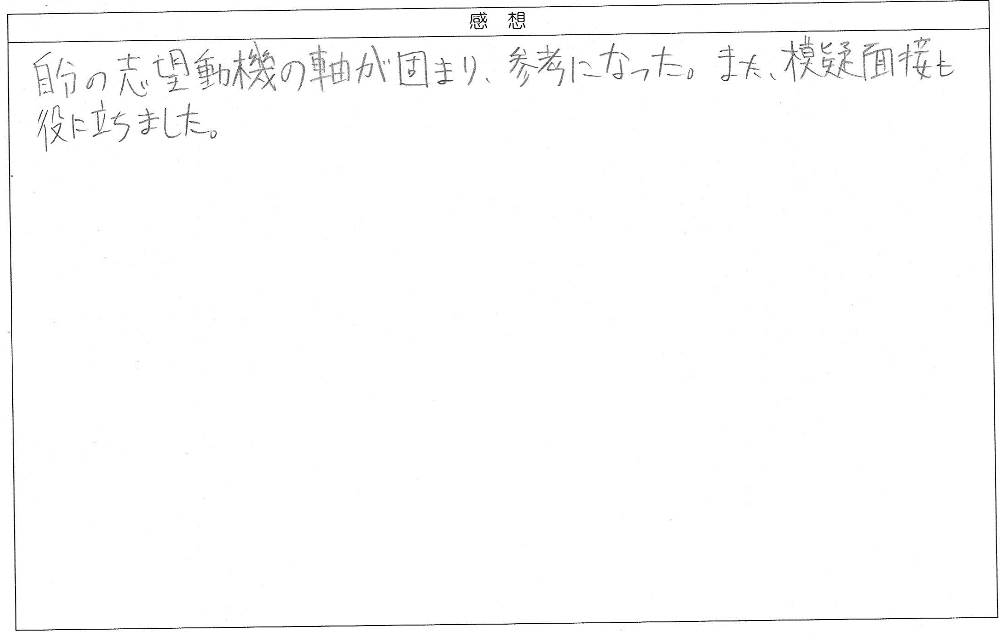 感想
自分の志望動機の軸が固まり、参考になった。また、模疑面接も
役に立ちました。